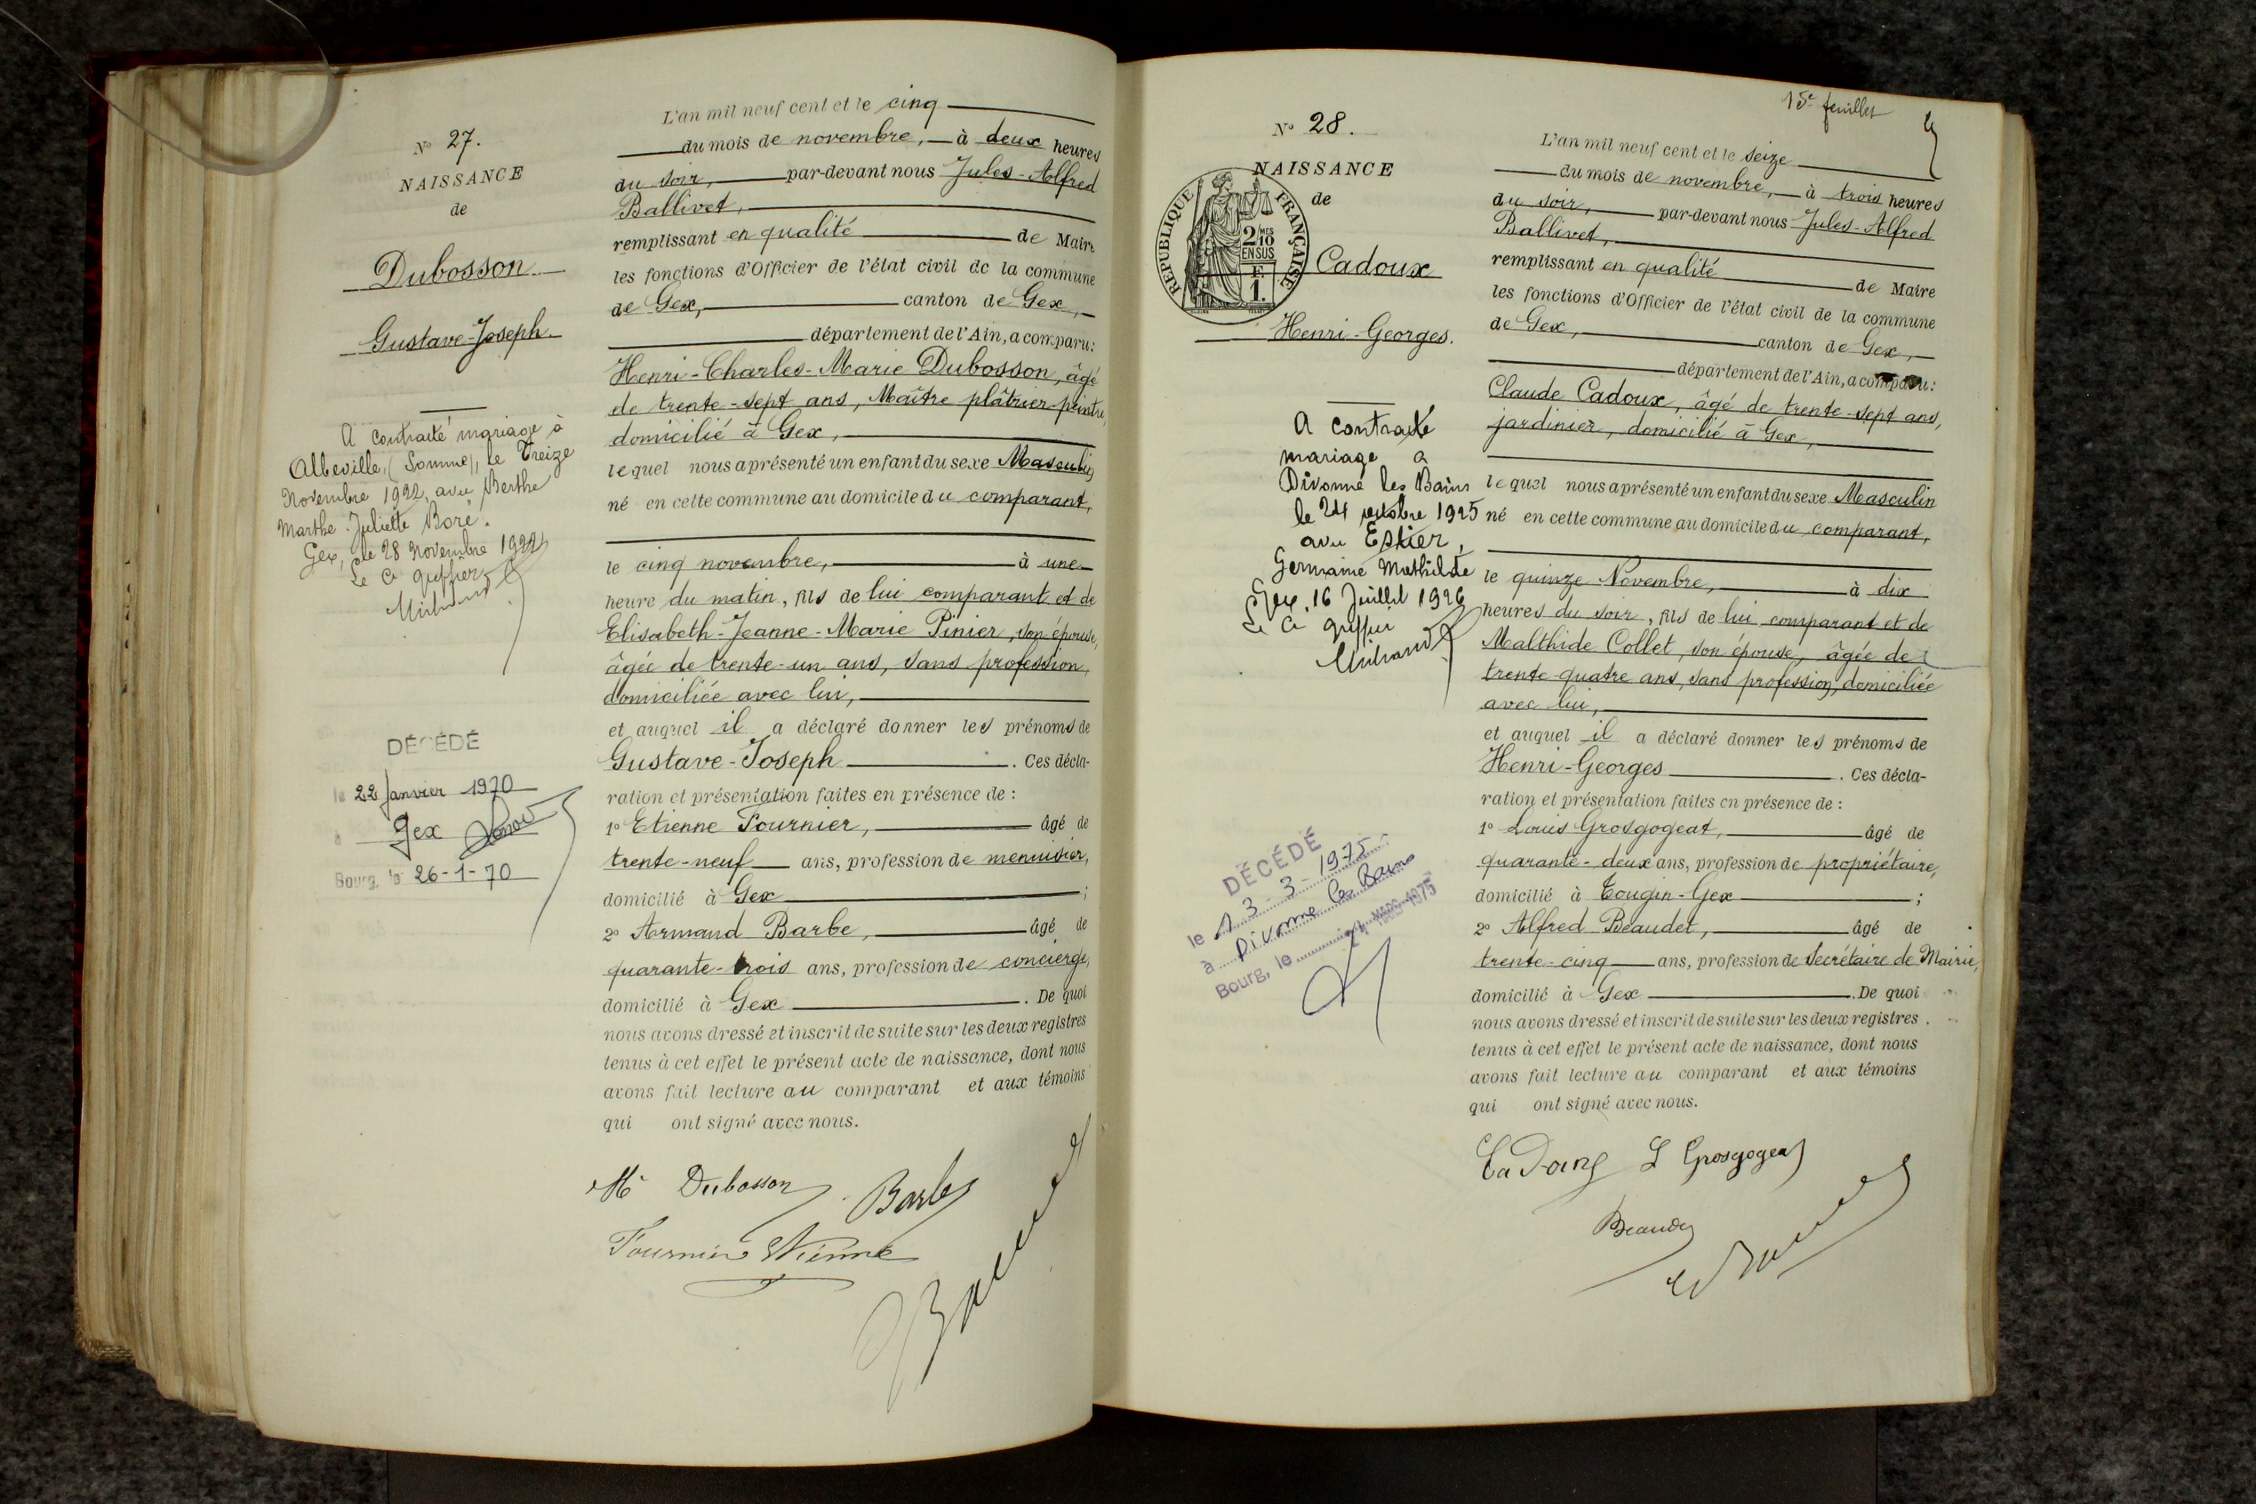 N° 27.
NAISSANCE
de
Dubosson
Gustave-Joseph
A contracté mariage à
Abbeville (Somme), le Treize
Novembre 1922, avec Berthe
Marthe Juliette Boré.
Gex, le 28 Novembre 1922
Le Ce greffier
DÉCÉDÉ
le 22 Janvier 1970
à Gex
Bourg, le 26-1-70
L'an mil neuf cent et le cinq
du mois de novembre, à deux heures
du soir, par-devant nous Jules-Alfred
Ballivet,
remplissant en qualité de Maire
les fonctions d'Officier de l'état civil de la commune
de Gex, canton de Gex,
département de l'Ain, a comparu:
Henri-Charles-Marie Dubosson, âgé
de trente-sept ans, Maître plâtrier-peintre,
domicilié à Gex,
lequel nous a présenté un enfant du sexe Masculin
né en cette commune au domicile du comparant,
le cinq novembre, à une
heure du matin, fils de lui comparant et de
Elisabeth-Jeanne-Marie Pinier, son épouse,
âgée de trente-un ans, sans profession,
domiciliée avec lui,
et auquel il a déclaré donner les prénoms de
Gustave-Joseph. Ces décla-
ration et présentation faites en présence de :
1° Etienne Fournier, âgé de
trente-neuf ans, profession de menuisier,
domicilié à Gex ;
2° Armand Barbe, âgé de
quarante-trois ans, profession de concierge,
domicilié à Gex. De quoi
nous avons dressé et inscrit de suite sur les deux registres
tenus à cet effet le présent acte de naissance, dont nous
avons fait lecture au comparant et aux témoins
qui ont signé avec nous.
Dubosson Barbe
Fournier Etienne
15e feuillet
N° 28.
NAISSANCE
de
RÉPUBLIQUE FRANÇAISE
2/10 MES
EN SUS
F.
1.
Cadoux
Henri-Georges.
A contracté
mariage a
Divonne les Bains
le 24 octobre 1925
avec Estier,
Germaine Mathilde
Gex, 16 Juillet 1926
Le Ce greffier
DÉCÉDÉ
le 13-3-1975
à Divonne les Bains
Bourg, le 21 MARS 1975
L'an mil neuf cent et le seize
du mois de novembre, à trois heures
du soir, par-devant nous Jules-Alfred
Ballivet,
remplissant en qualité de Maire
les fonctions d'Officier de l'état civil de la commune
de Gex, canton de Gex,
département de l'Ain, a comparu:
Claude Cadoux, âgé de trente-sept ans,
jardinier, domicilié à Gex,
lequel nous a présenté un enfant du sexe Masculin
né en cette commune au domicile du comparant,
le quinze Novembre, à dix
heures du soir, fils de lui comparant et de
Malthide Collet, son épouse, âgée de
trente-quatre ans, sans profession, domiciliée
avec lui,
et auquel il a déclaré donner les prénoms de
Henri-Georges. Ces décla-
ration et présentation faites en présence de :
1° Louis Grosgogeat, âgé de
quarante-deux ans, profession de propriétaire,
domicilié à Tougin-Gex ;
2° Alfred Beaudet, âgé de
trente-cinq ans, profession de Secrétaire de Mairie,
domicilié à Gex. De quoi
nous avons dressé et inscrit de suite sur les deux registres
tenus à cet effet le présent acte de naissance, dont nous
avons fait lecture au comparant et aux témoins
qui ont signé avec nous.
Cadoux L Grosgogeat
Beaudet